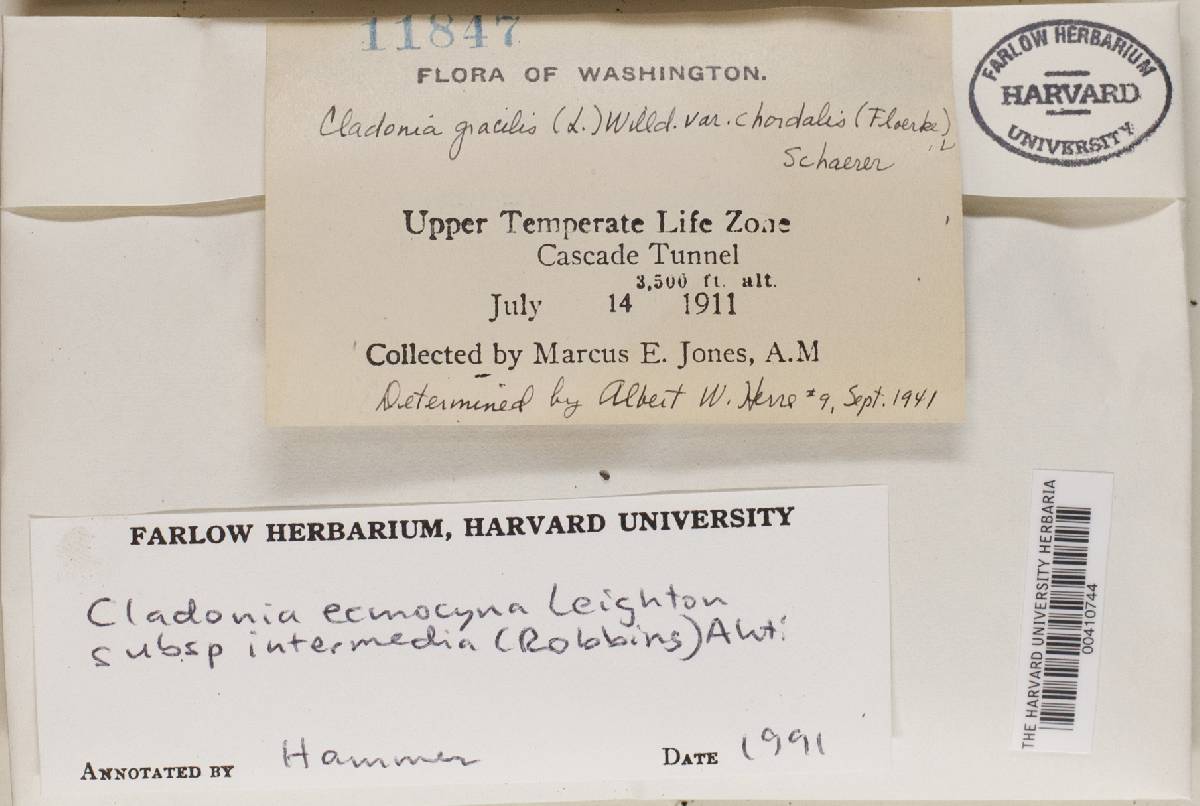 11847
FLORA OF WASHINGTON.
Cladonia gracilis (L.) Willd. var. chordalis (Floerke)
Schaerer
Upper Temperate Life Zone
Cascade Tunnel
3,500 ft. alt.
July 14 1911
Collected by Marcus E. Jones, A.M
Determined by Albert W. Herre #9, Sept. 1941
FARLOW HERBARIUM
HARVARD
UNIVERSITY
FARLOW HERBARIUM, HARVARD UNIVERSITY
Cladonia ecmocyna Leighton
subsp intermedia (Robbins) Ahti
ANNOTATED BY Hammer DATE 1991
THE HARVARD UNIVERSITY HERBARIA
00410744